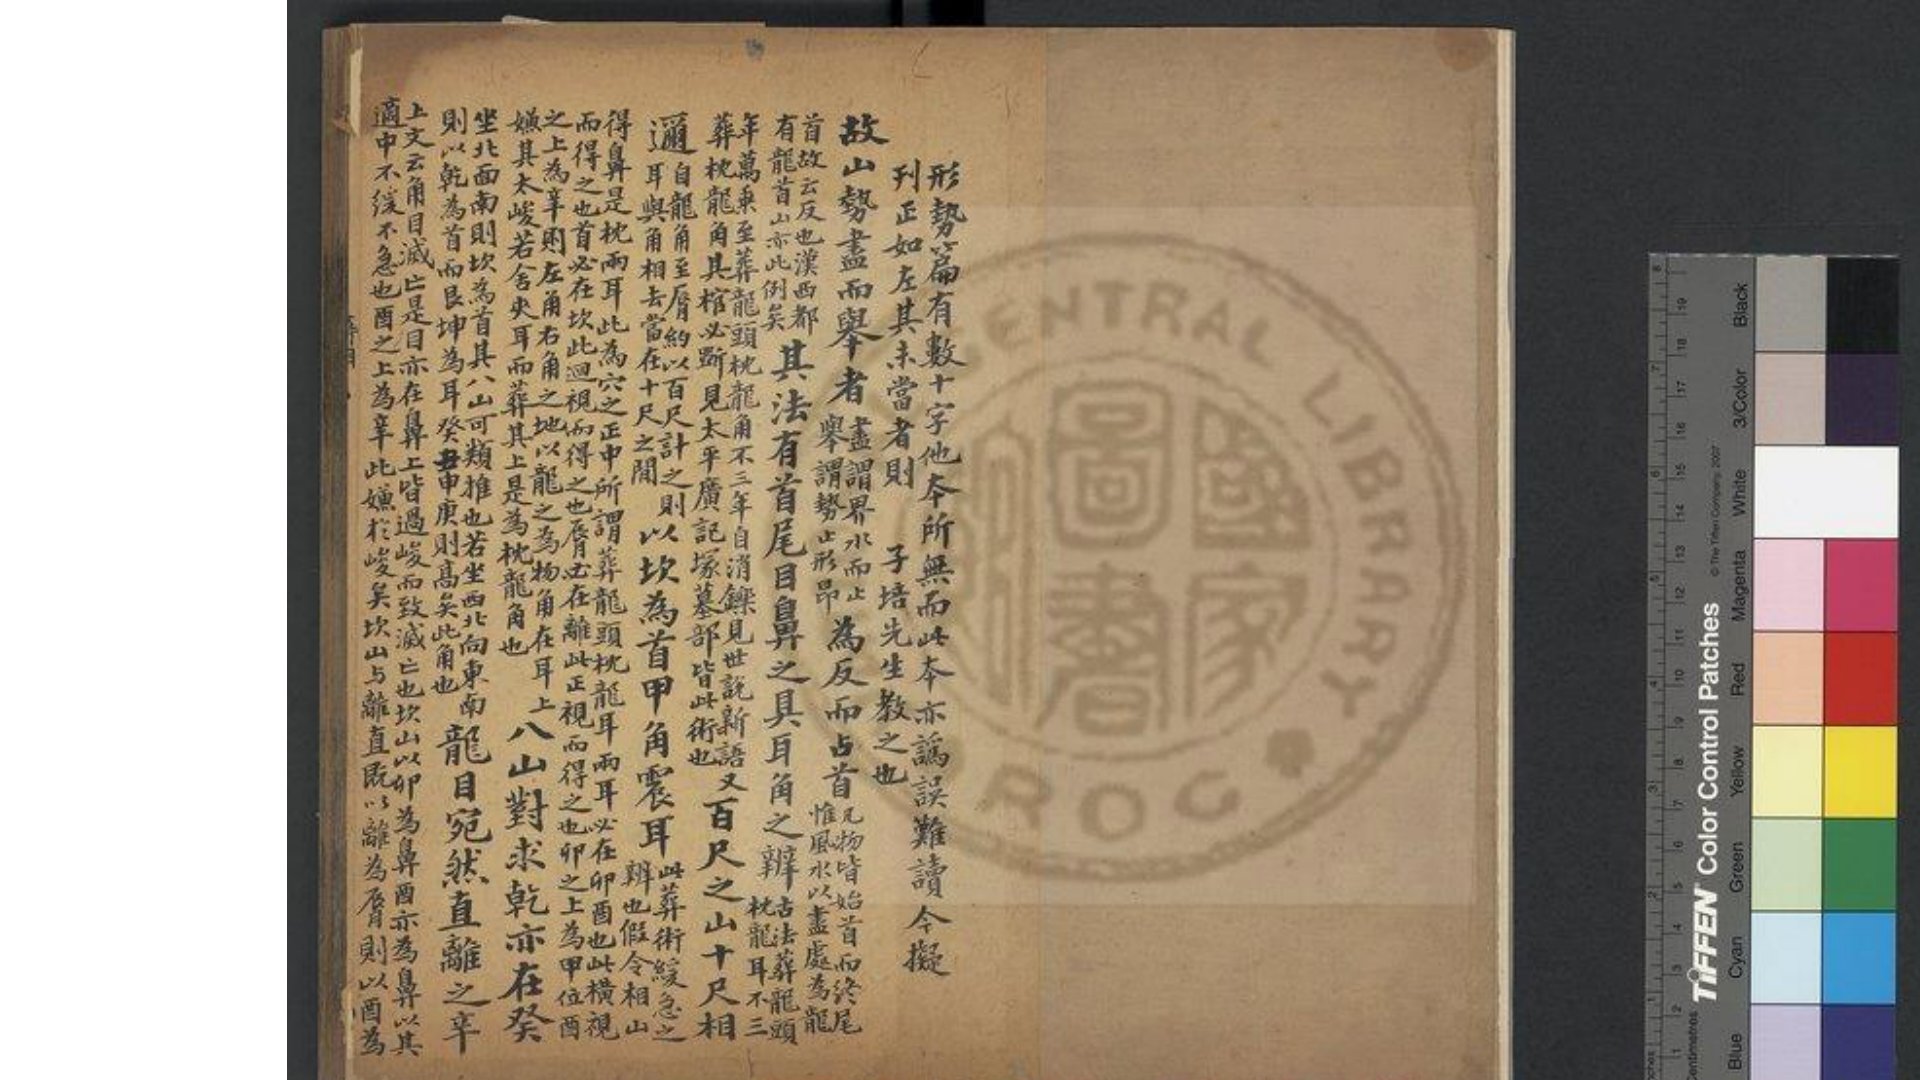 形勢篇有數十字他本所無而此本亦譌誤難讀今擬
刋正如左其未當者則 子培先生教之也
故山勢盡而舉者盡謂界水而止舉謂勢止形昂為反而占首凡物皆始首而終尾惟風水以盡處為龍
首故云反也漢西都有龍首山亦此例矣其法有首尾目鼻之具耳角之辨古法葬龍頭枕龍耳不三
年萬乘至葬龍頭枕龍角不三年自消鑠見世說新語又葬枕龍角其棺必斲見太平廣記塚墓部皆此術也百尺之山十尺相
邇自龍角至脣約以百尺計之則耳與角相去當在十尺之間以坎為首甲角震耳此葬術緩急之辨也假令相山
得鼻是枕兩耳此為穴之正中所謂葬龍頭枕龍耳兩耳必在卯酉也此橫視而得之也首必在坎此迴視而得之也脣必在離此正視而得之也卯之上為甲位酉
之上為辛則左角右角之地以龍之為物角在耳上嫌其太峻若舍夾耳而葬其上是為枕龍角也八山對求乾亦在癸
坐北面南則坎為首其八山可類推也若坐西北向東南則以乾為首而艮坤為耳癸丑申庚則高矣此角也龍目宛然直離之辛
上文云角目滅亡是目亦在鼻上皆過峻而致滅亡也坎山以卯為鼻酉亦為鼻以其
適中不緩不急也酉之上為辛此嫌於峻矣坎山与離直既以離為脣則以酉為
CENTRAL LIBRARY
ROC
國家圖書
TIFFEN Color Control Patches
© The Tiffen Company, 2007
Centimetres
Blue
Cyan
Green
Yellow
Red
Magenta
White
3/Color
Black